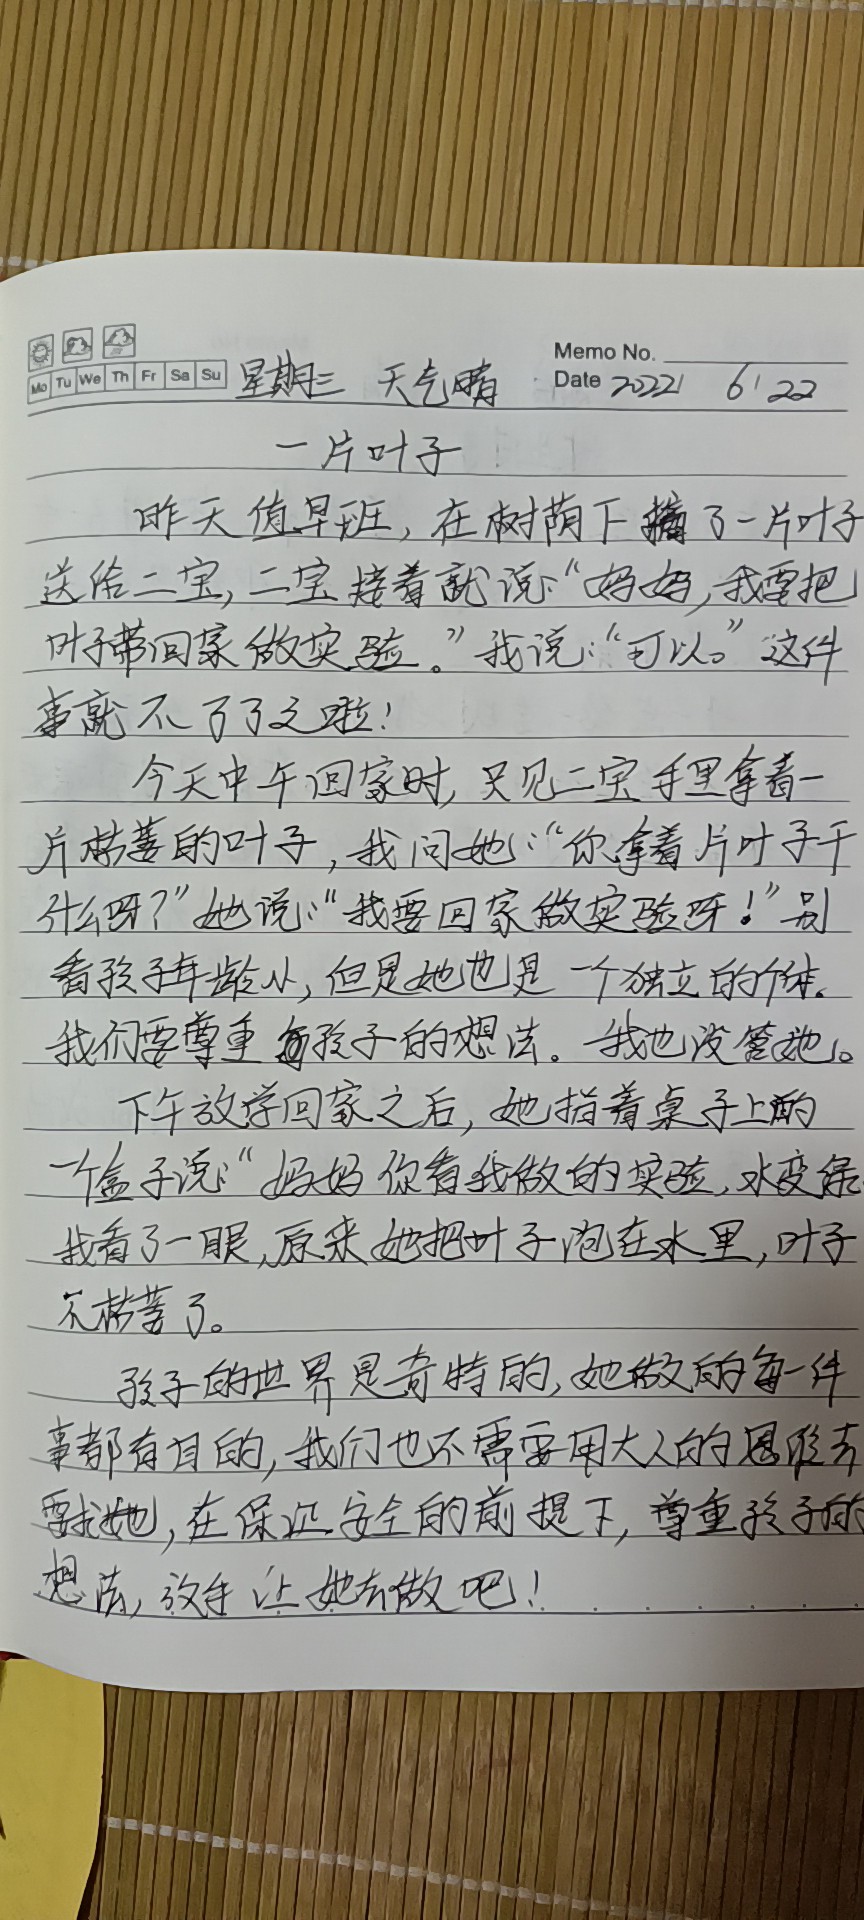 Memo No.
Mo Tu We Th Fr Sa Su 星期三 天气晴 Date 2022 6 22
一片叶子
昨天值早班，在树荫下摘了一片叶子
送给二宝，二宝接着就说：“妈妈，我要把
叶子带回家做实验。”我说：“可以。”这件
事就不了了之啦！
今天中午回家时，只见二宝手里拿着一
片枯萎的叶子，我问她：“你拿着片叶子干
什么呀？”她说：“我要回家做实验呀！”别
看孩子年龄小，但是她也是一个独立的个体。
我们要尊重每孩子的想法。我也没管她。
下午放学回家之后，她指着桌子上的
一个盒子说：“妈妈你看我做的实验，水变绿
我看了一眼，原来她把叶子泡在水里，叶子
不枯萎了。
孩子的世界是奇特的，她做的每一件
事都有目的，我们也不需要用大人的思维去
要求她，在保证安全的前提下，尊重孩子的
想法，放手让她去做吧！